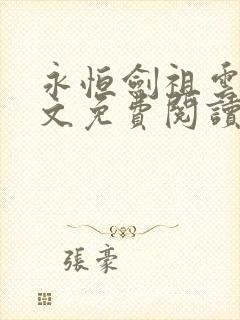 永恒劍祖雲
文免費閱讀
張豪